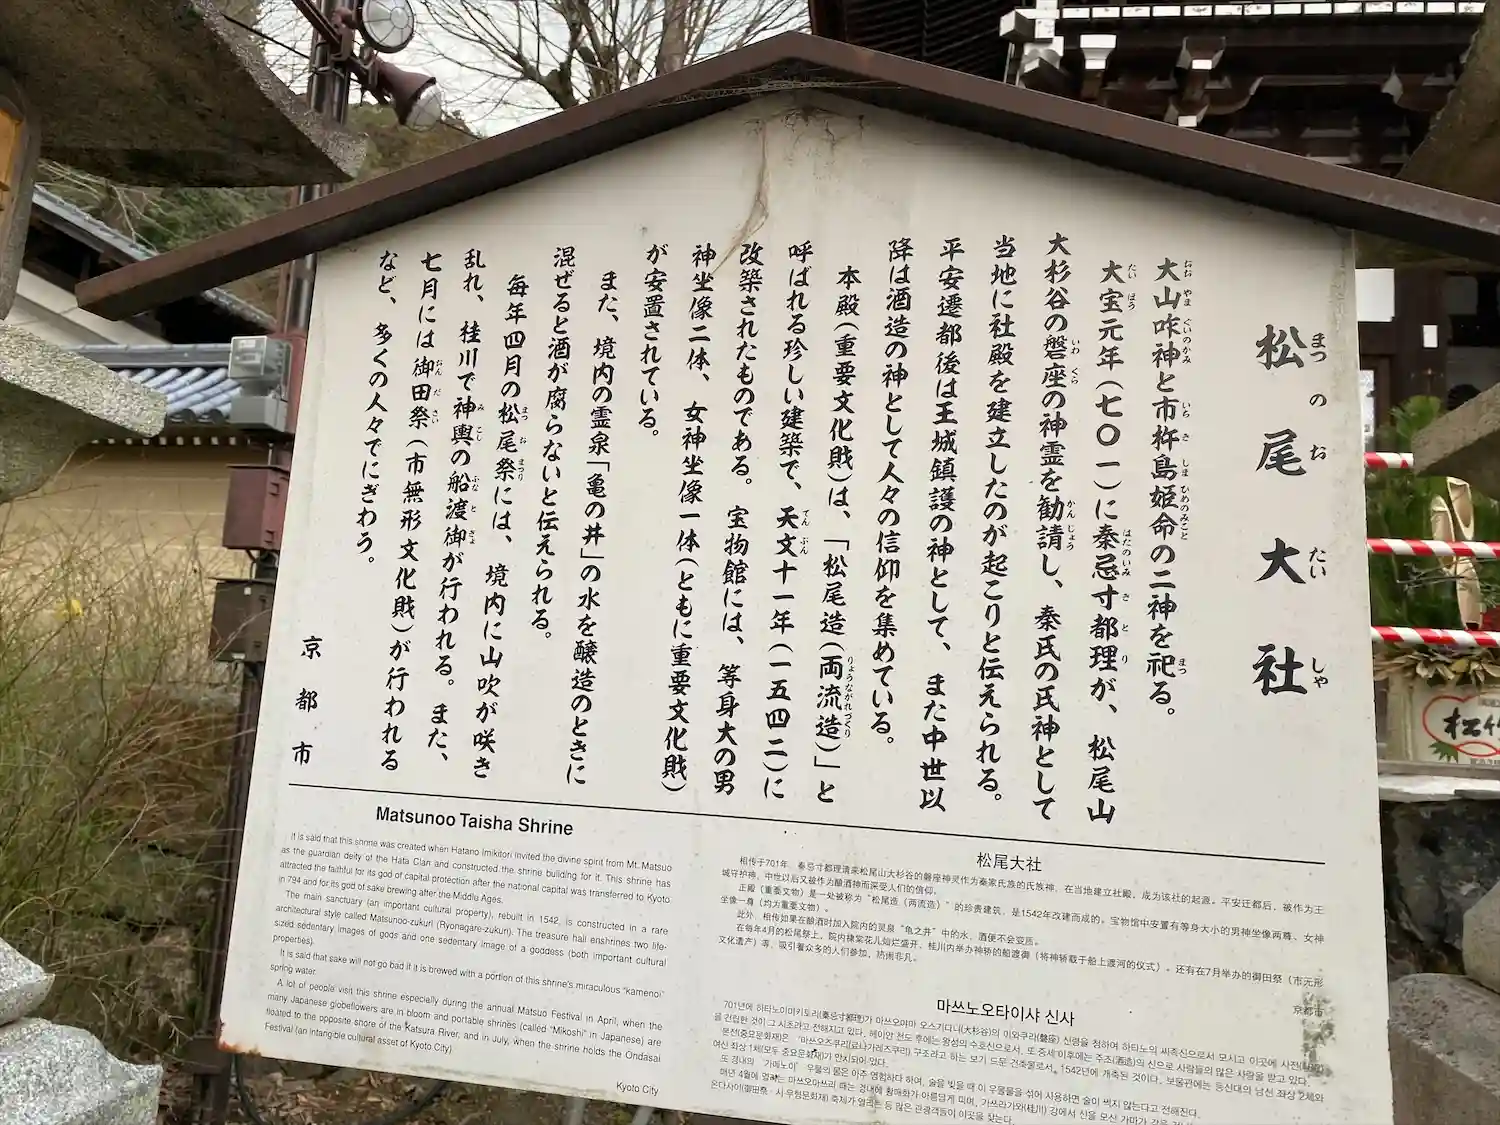 松尾大社
まつのおたいしゃ
大山咋神と市杵島姫命の二神を祀る。
大宝元年(七〇一)に秦忌寸都理が、松尾山
大杉谷の磐座の神霊を勧請し、秦氏の氏神として
当地に社殿を建立したのが起こりと伝えられる。
平安遷都後は王城鎮護の神として、また中世以
降は酒造の神として人々の信仰を集めている。
本殿(重要文化財)は、「松尾造(両流造)」と
呼ばれる珍しい建築で、天文十一年(一五四二)に
改築されたものである。宝物館には、等身大の男
神坐像二体、女神坐像一体(ともに重要文化財)
が安置されている。
また、境内の霊泉「亀の井」の水を醸造のときに
混ぜると酒が腐らないと伝えられる。
毎年四月の松尾祭には、境内に山吹が咲き
乱れ、桂川で神輿の船渡御が行われる。また、
七月には御田祭(市無形文化財)が行われる
など、多くの人々でにぎわう。
京都市
Matsunoo Taisha Shrine
It is said that this shrine was created when Hatano Imikitori invited the divine spirit from Mt. Matsuo
as the guardian deity of the Hata Clan and constructed the shrine building for it. This shrine has
attracted the faithful for its god of capital protection after the national capital was transferred to Kyoto
in 794 and for its god of sake brewing after the Middle Ages.
The main sanctuary (an important cultural property), rebuilt in 1542, is constructed in a rare
architectural style called Matsunoo-zukuri (Ryonagare-zukuri). The treasure hall enshrines two life-
sized sedentary images of gods and one sedentary image of a goddess (both important cultural
properties).
It is said that sake will not go bad if it is brewed with a portion of this shrine's miraculous "kamenoi"
spring water.
A lot of people visit this shrine especially during the annual Matsuo Festival in April, when the
many Japanese globeflowers are in bloom and portable shrines (called "Mikoshi" in Japanese) are
floated to the opposite shore of the Katsura River, and in July, when the shrine holds the Ondasai
Festival (an intangible cultural asset of Kyoto City)
Kyoto City
松尾大社
相传于701年，秦忌寸都理请来松尾山大杉谷的磐座神灵作为秦家氏族的氏族神，在当地建立社殿，成为该社的起源。平安迁都后，被作为王
城守护神，中世以后又被作为酿酒神而深受人们的信仰。
正殿（重要文物）是一处被称为“松尾造（两流造）”的珍贵建筑，是1542年改建而成的。宝物馆中安置有等身大小的男神坐像两尊、女神
坐像一尊（均为重要文物）。
此外，相传如果在酿酒时加入院内的灵泉“龟之井”中的水，酒便不会变质。
在每年4月的松尾祭上，院内棣棠花儿灿烂盛开，桂川内举办神轿的船渡御（将神轿载于船上渡河的仪式）。还有在7月举办的御田祭（市无形
文化遗产）等，吸引着众多的人们参加，热闹非凡。
京都市
마쓰노오타이샤 신사